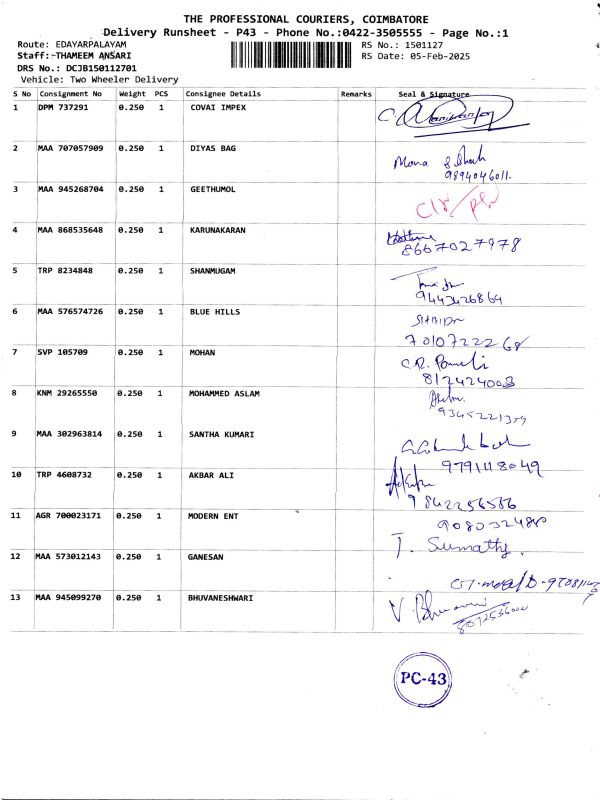 THE PROFESSIONAL COURIERS, COIMBATORE
Delivery Runsheet - P43 - Phone No.:0422-3505555 - Page No.:1
Route: EDAYARPALAYAM
RS No.: 1501127
Staff: THAMEEM ANSARI
RS Date: 05-Feb-2025
DRS No.: DCJB150112701
Vehicle: Two Wheeler Delivery
S No Consignment No Weight PCS Consignee Details Remarks Seal & Signature
1 DPM 737291 0.250 1 COVAI IMPEX
2 MAA 707057909 0.250 1 DIYAS BAG
9894046011.
3 MAA 945268704 0.250 1 GEETHUMOL
4 MAA 868535648 0.250 1 KARUNAKARAN
8667027978
5 TRP 8234848 0.250 1 SHANMUGAM
9443426864
6 MAA 576574726 0.250 1 BLUE HILLS
7010722268
7 SVP 105709 0.250 1 MOHAN
812424003
8 KNM 29265550 0.250 1 MOHAMMED ASLAM
9345221379
9 MAA 302963814 0.250 1 SANTHA KUMARI
9791118049
10 TRP 4608732 0.250 1 AKBAR ALI
9842256586
11 AGR 700023171 0.250 1 MODERN ENT
T. Sumathy.
12 MAA 573012143 0.250 1 GANESAN
13 MAA 945099270 0.250 1 BHUVANESHWARI
PC-43